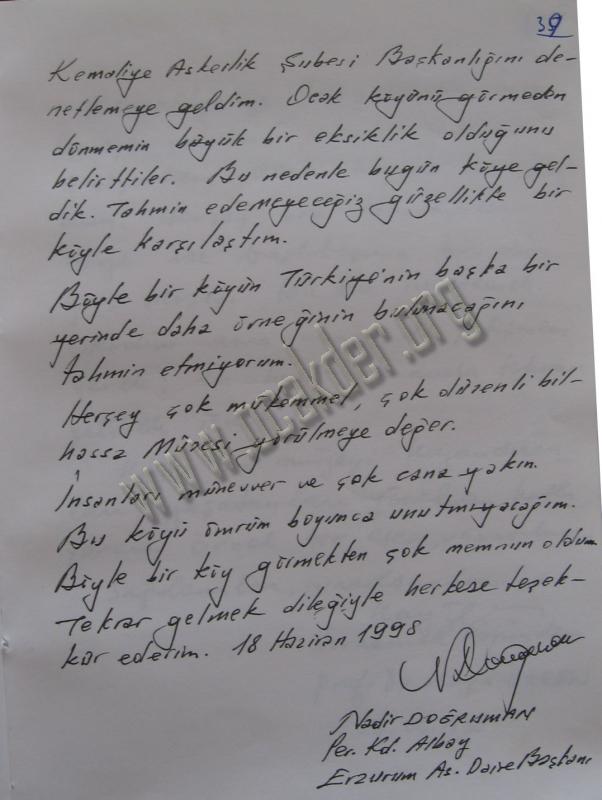 39
Kemaliye Askerlik Şubesi Başkanlığını de-
netlemeye geldim. Ocak köyünü görmeden
dönmemin büyük bir eksiklik olduğunu
belirttiler. Bu nedenle bugün köye gel-
dik. Tahmin edemeyeceğiz güzellikte bir
köyle karşılaştım.
Böyle bir köyün Türkiye'nin başka bir
yerinde daha örneğinin bulunacağını
tahmin etmiyorum.
Herşey çok mükemmel, çok düzenli bil-
hassa Müzesi görülmeye değer.
İnsanları münevver ve çok cana yakın.
Bu köyü ömrüm boyunca unutmıyacağım.
Böyle bir köy görmekten çok memnun oldum.
Tekrar gelmek dileğiyle herkese teşek-
kür ederim. 18 Haziran 1998
Nadir DOĞRUMAN
Per. Kd. Albay
Erzurum As. Daire Başkanı
www.ocakder.org